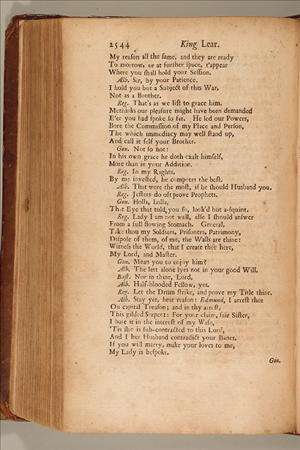 2544 King Lear.
My reason all the same, and they are ready
To morrow, or at further space, t'appear
Where you shall hold your Session.
Alb. Sir, by your Patience,
I hold you but a Subject of this War,
Not as a Brother.
Reg. That's as we list to grace him.
Methinks our pleasure might have been demanded
E'er you had spoke so far. He led our Powers,
Bore the Commission of my Place and Person,
The which immediacy may well stand up,
And call it self your Brother.
Gon. Not so hot:
In his own grace he doth exalt himself,
More than in your Addition.
Reg. In my Rights,
By me invested, he compeers the best.
Alb. That were the most, if he should Husband you.
Reg. Jesters do oft prove Prophets.
Gon. Holla, holla,
That Eye that told you so, look'd but a-squint.
Reg. Lady I am not well, else I should answer
From a full flowing Stomach. General,
Take thou my Soldiers, Prisoners, Patrimony,
Dispose of them, of me, the Walls are thine:
Witness the World, that I create thee here,
My Lord, and Master.
Gon. Mean you to enjoy him?
Alb. The lett alone lyes not in your good Will.
Bast. Nor in thine, Lord.
Alb. Half-blooded Fellow, yes.
Reg. Let the Drum strike, and prove my Title thine.
Alb. Stay yet, hear reason: Edmund, I arrest thee
On capital Treason; and in thy arrest,
This gilded Serpent: For your claim, fair Sister,
I bare it in the interest of my Wife,
'Tis she is sub-contracted to this Lord,
And I her Husband contradict your Banes.
If you will marry, make your loves to me,
My Lady is bespoke.
Gon.